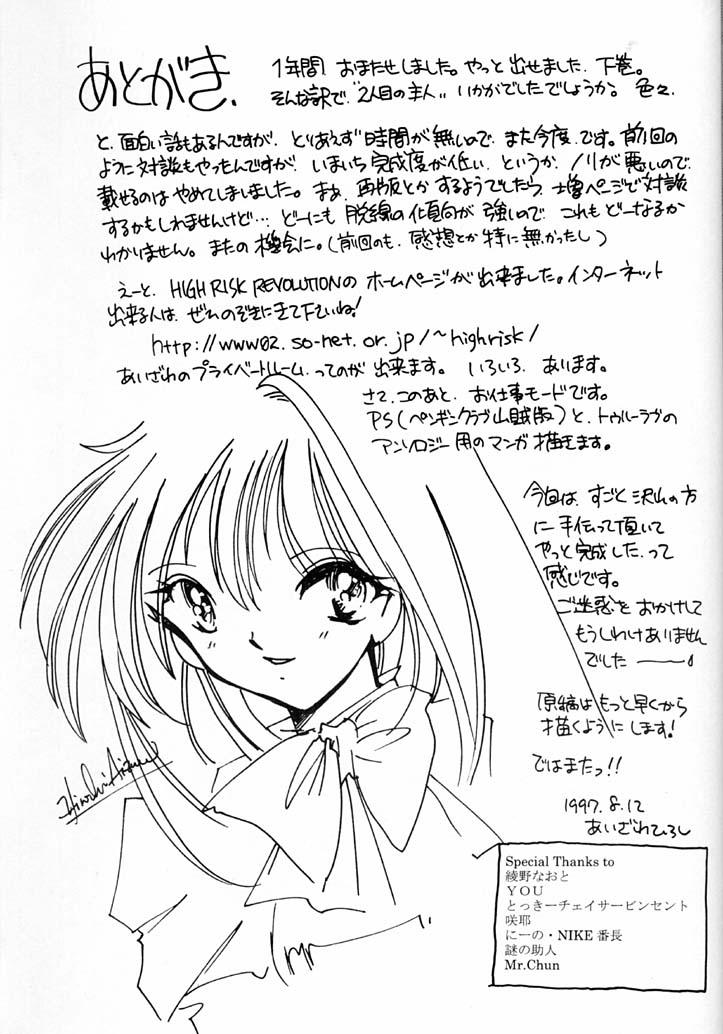 あとがき.
1年間、おまたせしました。やっと出せました、下巻。
そんな訳で"2人目の主人"いかがでしたでしょうか。色々
と、面白い話もあるんですが、とりあえず時間が無いので、また今度です。前回の
ように対談もやったんですが、いまいち完成度が低い、というか、ノリが悪いので、
載せるのはやめてしまいました。まぁ、再版とかするようでしたら、増ページで対談
するかもしれませんけど…どーにも脱線の傾向が強いので、これもどーなるか
わかりません。またの機会に。(前回のも、感想とか特に無かったし)
えーと、HIGH RISK REVOLUTIONのホームページが出来ました。インターネット
出来る人は、ぜひのぞきにきて下さいね!
http://www02.so-net.or.jp/~highrisk/
あいざわのプライベートルーム、ってのが出来ます。いろいろ、あります。
さて、このあと、お仕事モードです。
PS(ペンギンクラブ山賊版)と、トゥルーラヴの
アンソロジー用のマンガ描きます。
今回は、すごと沢山の方
に手伝って頂いて
やっと完成した、って
感じです。
ご迷惑をおかけして
もうしわけありません
でした——。
原稿はもっと早くから
描くようにします!
ではまたっ!!
1997.8.12
あいざわひろし
Hiroshi Aizawa
Special Thanks to
綾野なおと
ＹＯＵ
とっきーチェイサービンセント
咲耶
にーの・NIKE番長
謎の助人
Mr.Chun